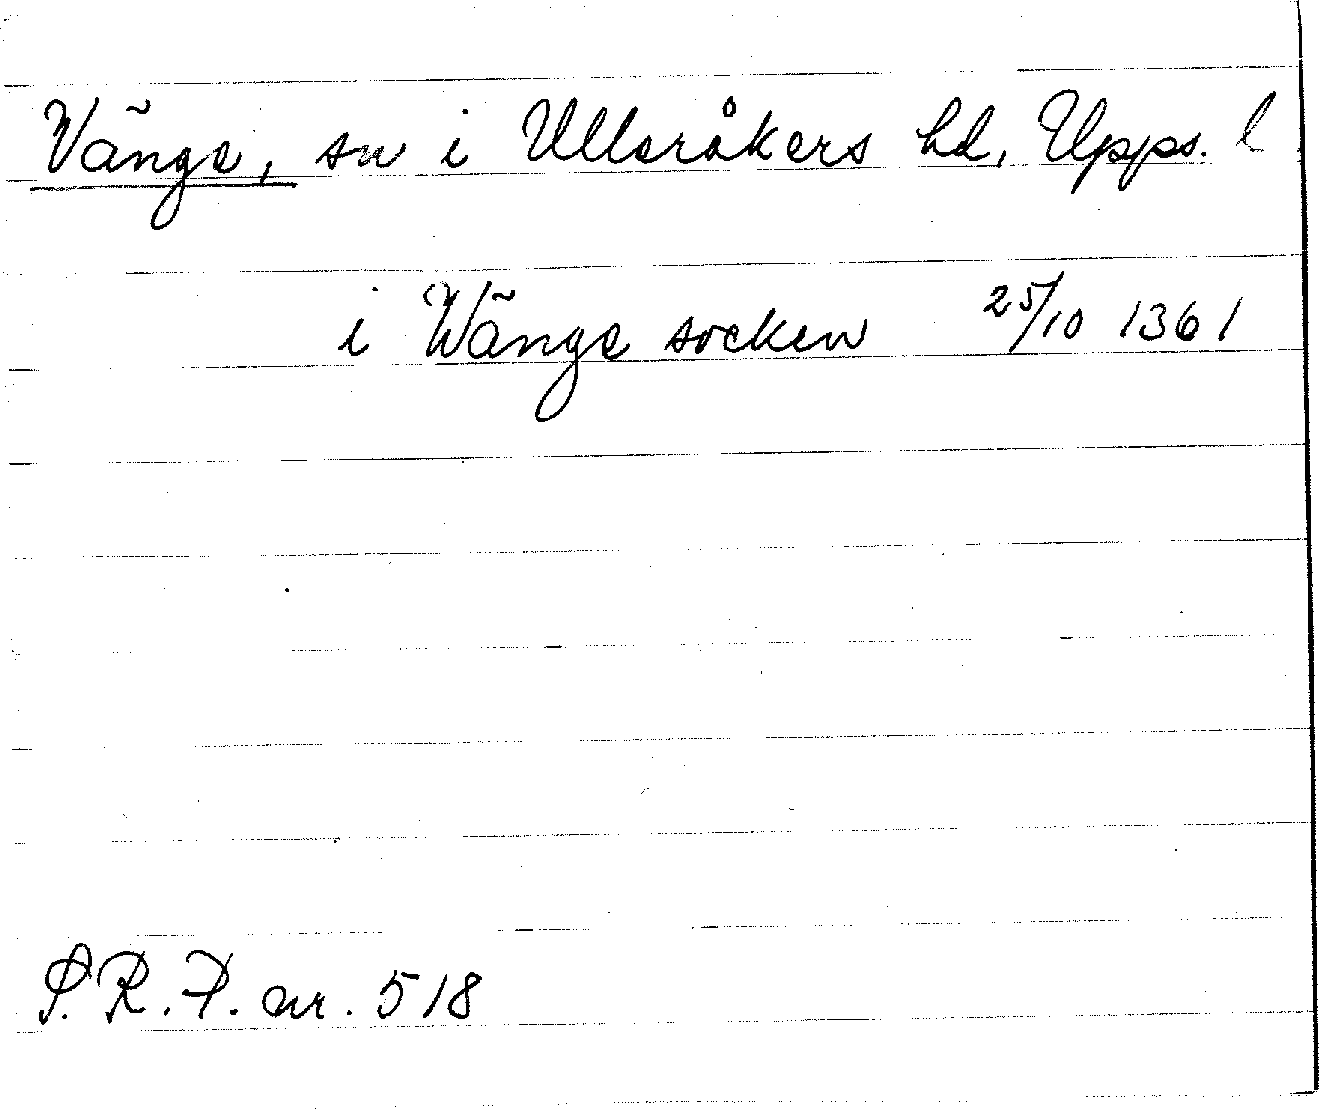 Vänge, sn i Ulleråkers hd, Upps. l
i Wänge socken 25/10 1361
S.R.P. nr. 518